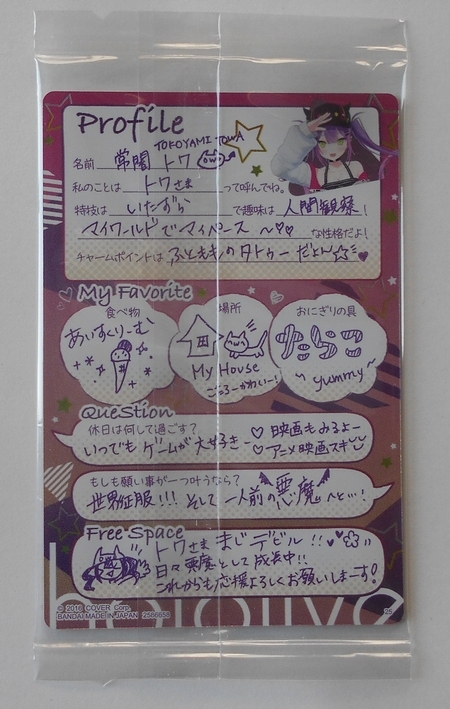 Profile
TOKOYAMI TOWA
名前 常闇 トワ
私のことは トワさま って呼んでね。
特技は いたずら で趣味は 人間観察!
マイワールドでマイペース ～♡♡ な性格だよ!
チャームポイントは ふともものタトゥーだよん☆♥
My Favorite
食べ物
あいすくりーむ
場所
My House
ごろごろーかわいー!
おにぎりの具
たらこ
yummy
QueStion
休日は何して過ごす?
いつでも ゲームが大好きー
♡ 映画もみるよー
♡ アニメ映画スキ
もしも願い事が一つ叶うなら?
世界征服!!! そして 一人前の悪魔へと…!
Free Space
トワさま まじデビル!!
日々悪魔として成長中!!
これからも応援よろしくお願いしまーす!
© 2016 COVER Corp.
BANDAI MADE IN JAPAN 2586658
hololive